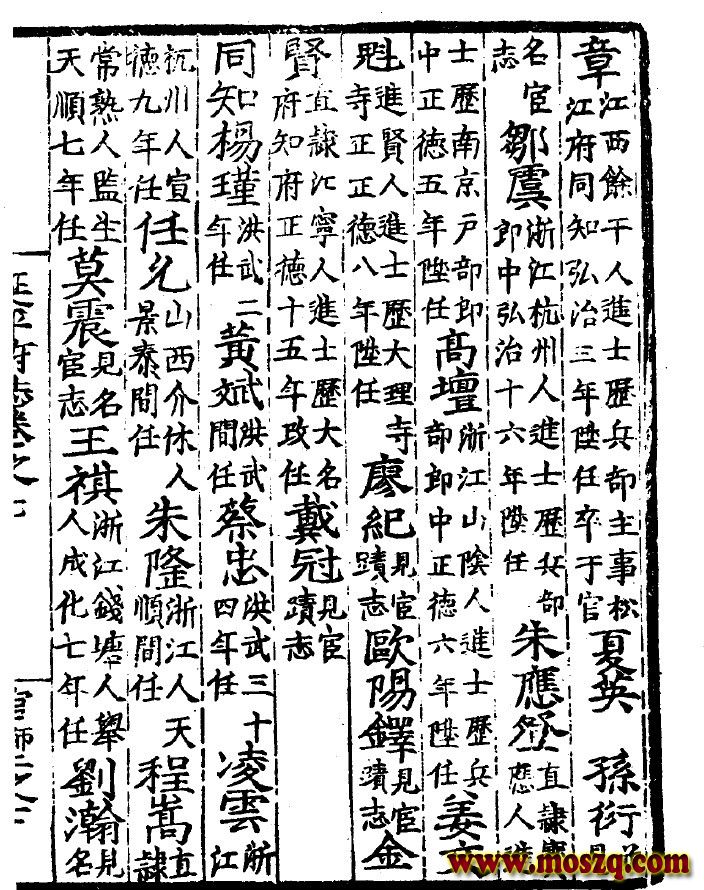 章江西餘干人進士歷兵部主事松江府同知弘治三年陞任卒于官夏英 孫衍
名宦志鄒虞浙江杭州人進士歷兵部郎中弘治十六年陞任朱應登直隸寶應人進
士歷南京戶部郎中正德五年陞任高壇浙江山陰人進士歷兵部郎中正德六年陞任姜文
魁進賢人進士歷大理寺寺正正德八年陞任廖紀見宦蹟志歐陽鐸見宦蹟志金
賢直隸江寧人進士歷大名府知府正德十五年改任戴冠見宦蹟志
同知楊瑾洪武二年任黃斌洪武間任蔡忠洪武三十四年任凌雲浙江
杭州人宣德九年任任允山西介休人景泰間任朱隆浙江人天順間任程嵩直隸
常熟人監生天順七年任莫震見名宦志王祺浙江錢塘人舉人成化七年任劉瀚見名
延平府志卷之七
www.moszq.com